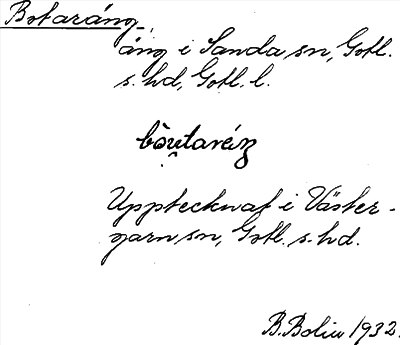 Botaräng
äng i Sanda sn, Gotl.
s. hd, Gotl. l.
bòu̯taréŋ
Upptecknat i Väster-
garn sn, Gotl. s. hd.
B. Bolin 1932.